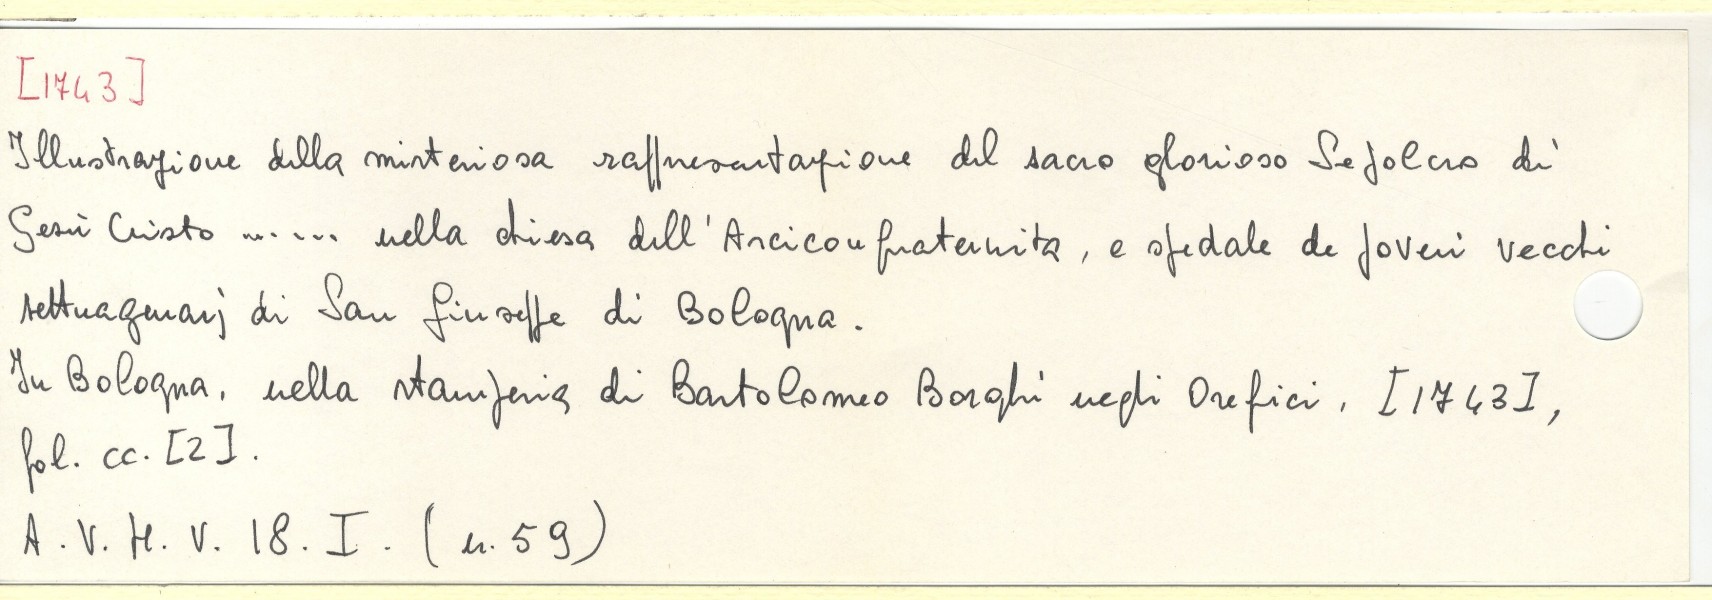 [1743]
Illustrazione della misteriosa rappresentazione del sacro glorioso Sepolcro di
Gesù Cristo ....... nella chiesa dell'Arciconfraternita, e spedale de poveri vecchi
settuagenarj di San Giuseppe di Bologna.
In Bologna, nella stamperia di Bartolomeo Borghi negli Orefici, [1743],
fol. cc. [2].
A. V. H. V. 18. I. (n. 59)